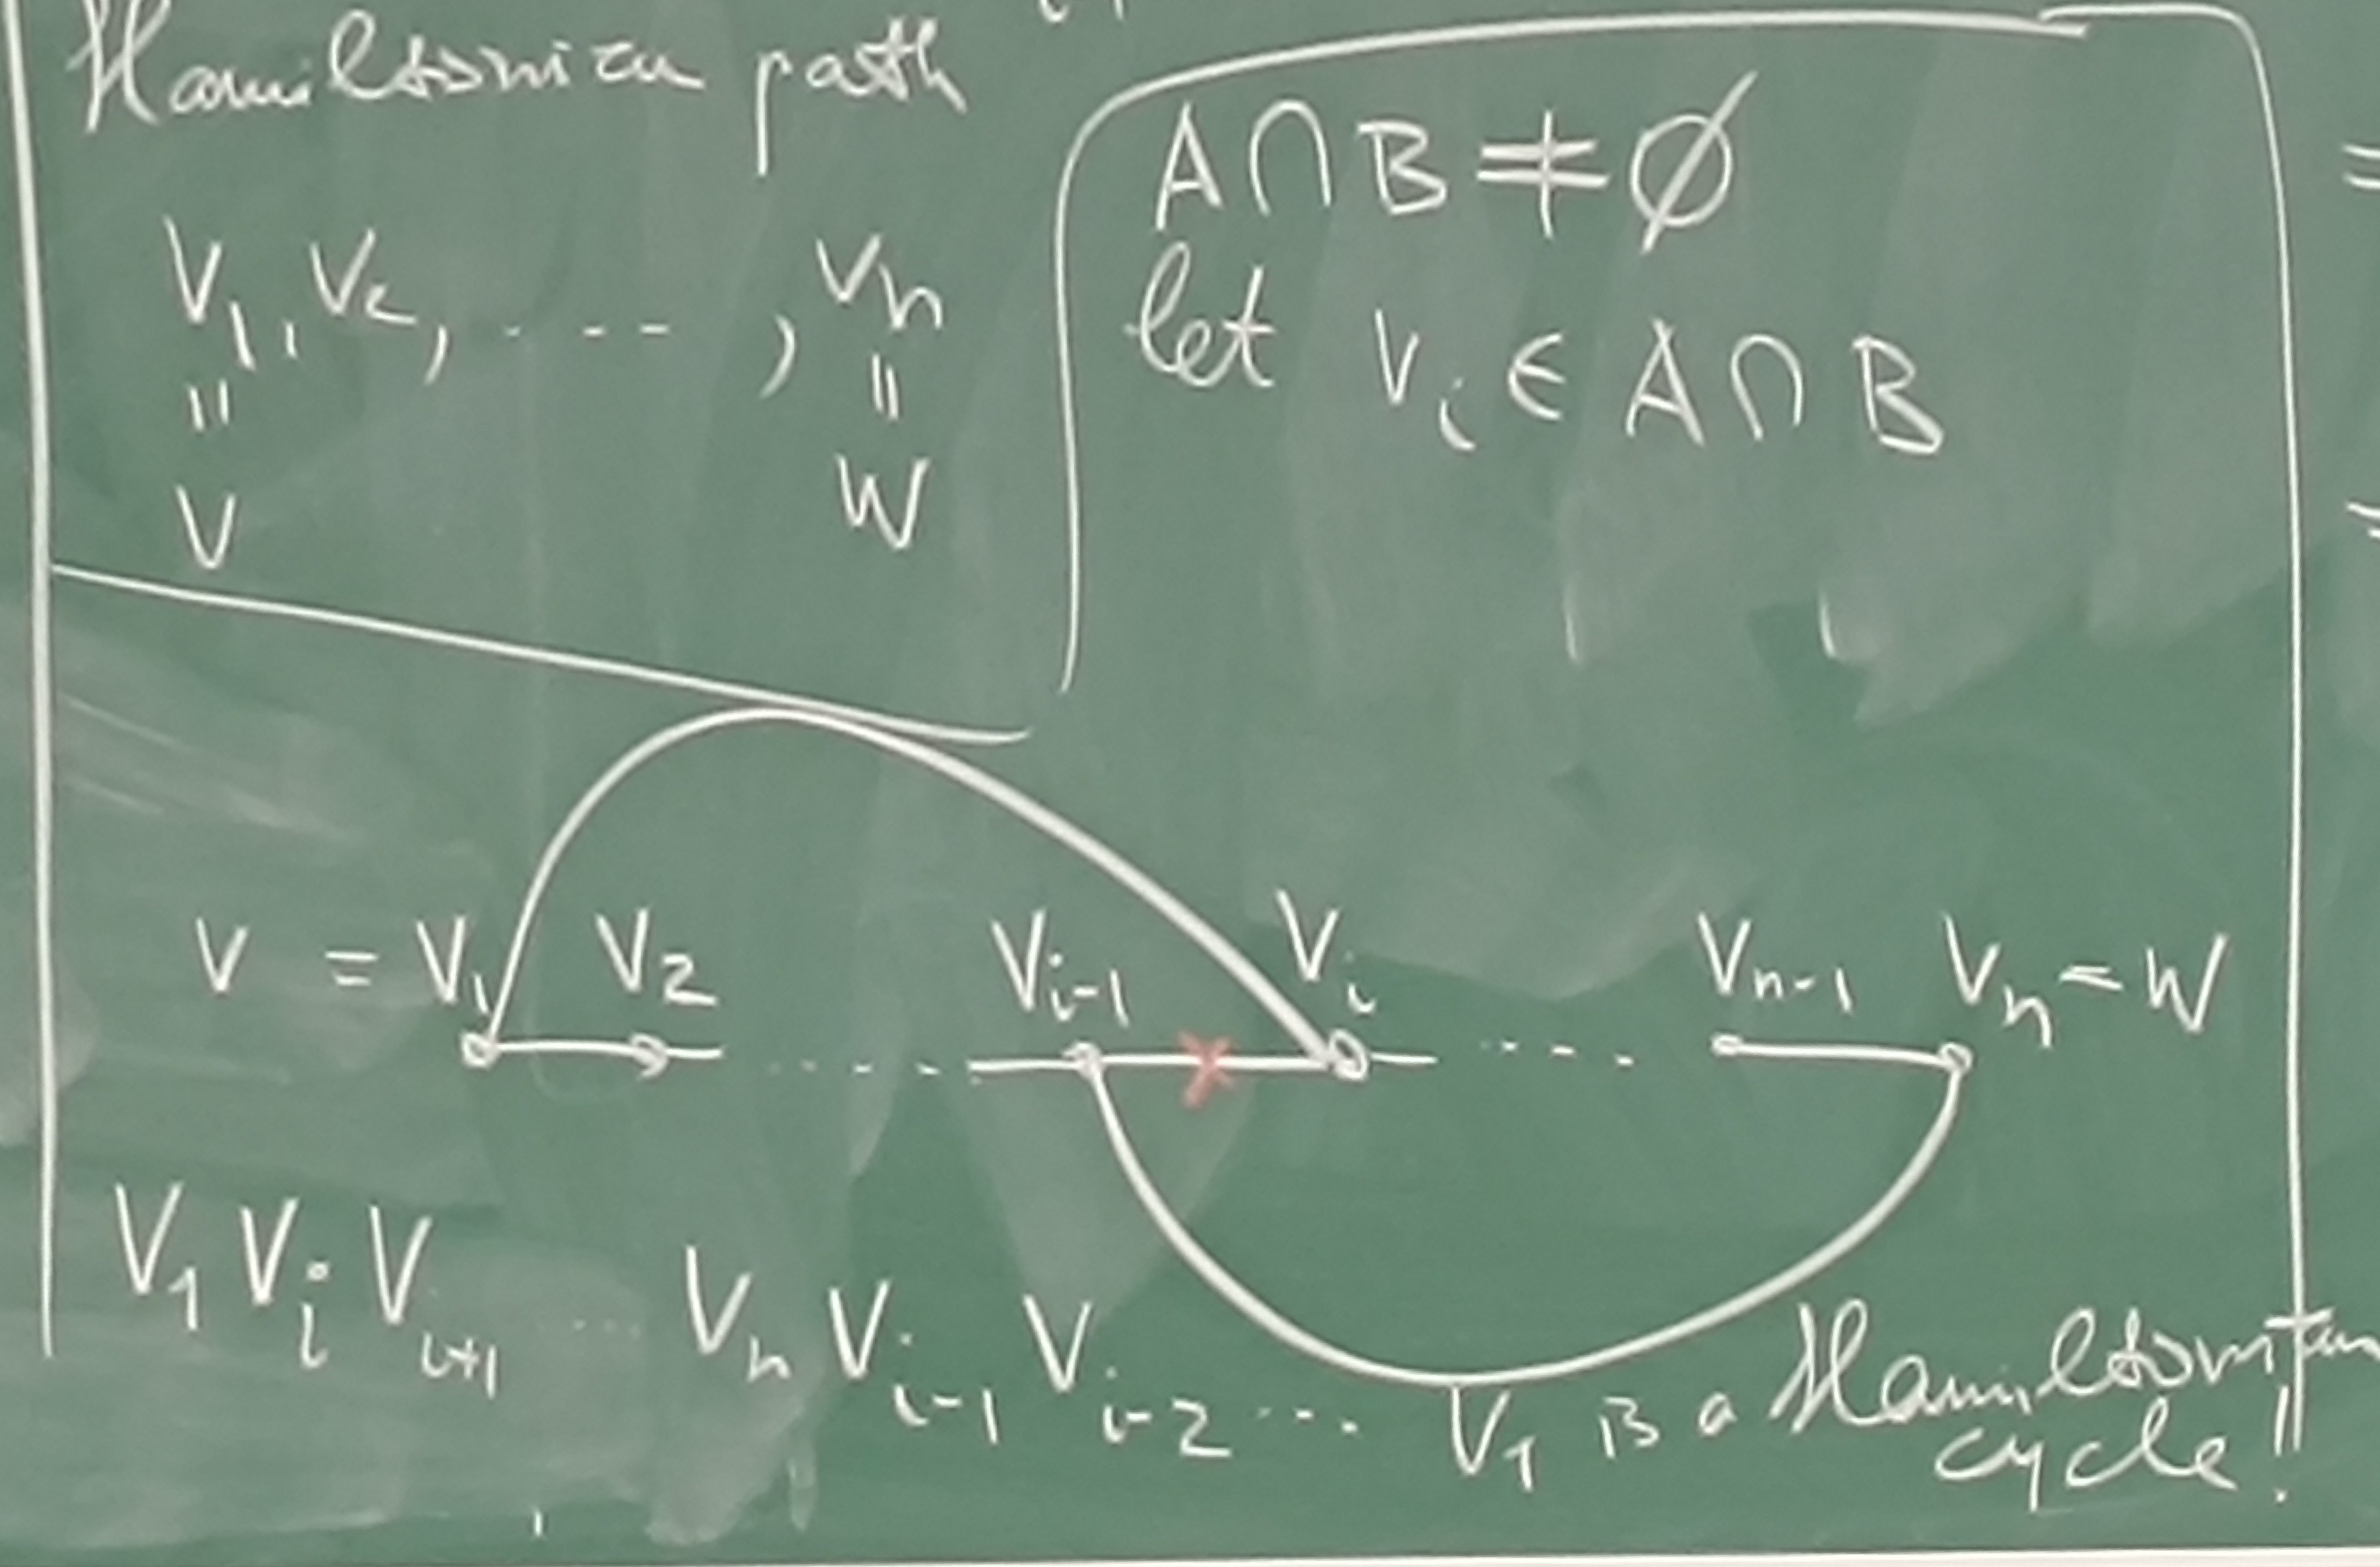 Hamiltonian path
V₁, V₂, ...., Vₙ
=    =
V    W
A∩B≠∅
let Vᵢ ∈ A∩B
V = V₁ V₂ Vᵢ₋₁ Vᵢ Vₙ₋₁ Vₙ = W
V₁ Vᵢ Vᵢ₊₁ .... Vₙ Vᵢ₋₁ Vᵢ₋₂ .... V₁ is a Hamiltonian
cycle!